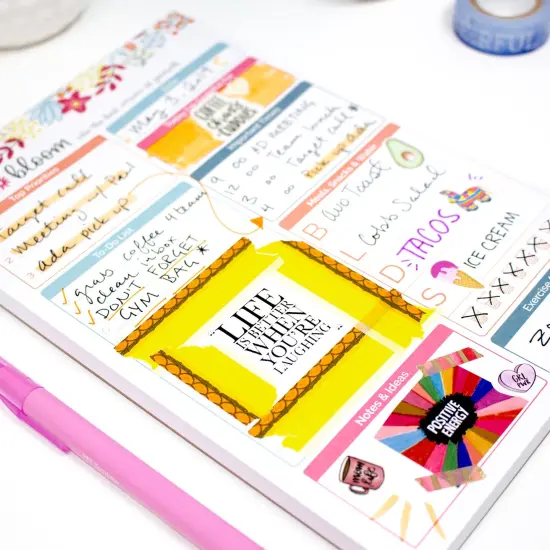 bloom
Date
May 3, 2019
COFFEE
Important Times
9 00 AD MEETING
12 00 Team Snack
3 00 Target Call
4 00 Pick up Ada
Top Priorities
1 Target call
2 Meeting w/
3 Ada pick up
To-Do List
✓ grab coffee 4 team
✓ clean inbox
✓ DON'T FORGET
GYM BAG *
Meals, Snacks & Water
B Avo Toast
L Cobb Salad
D TACOS
S ICE CREAM
XXXXXXXX
Exercise
"LIFE
IS BETTER
WHEN
YOU'RE
LAUGHING"
Notes & Ideas
POSITIVE
ENERGY
GRL
PWR
mom
life
ERFUL